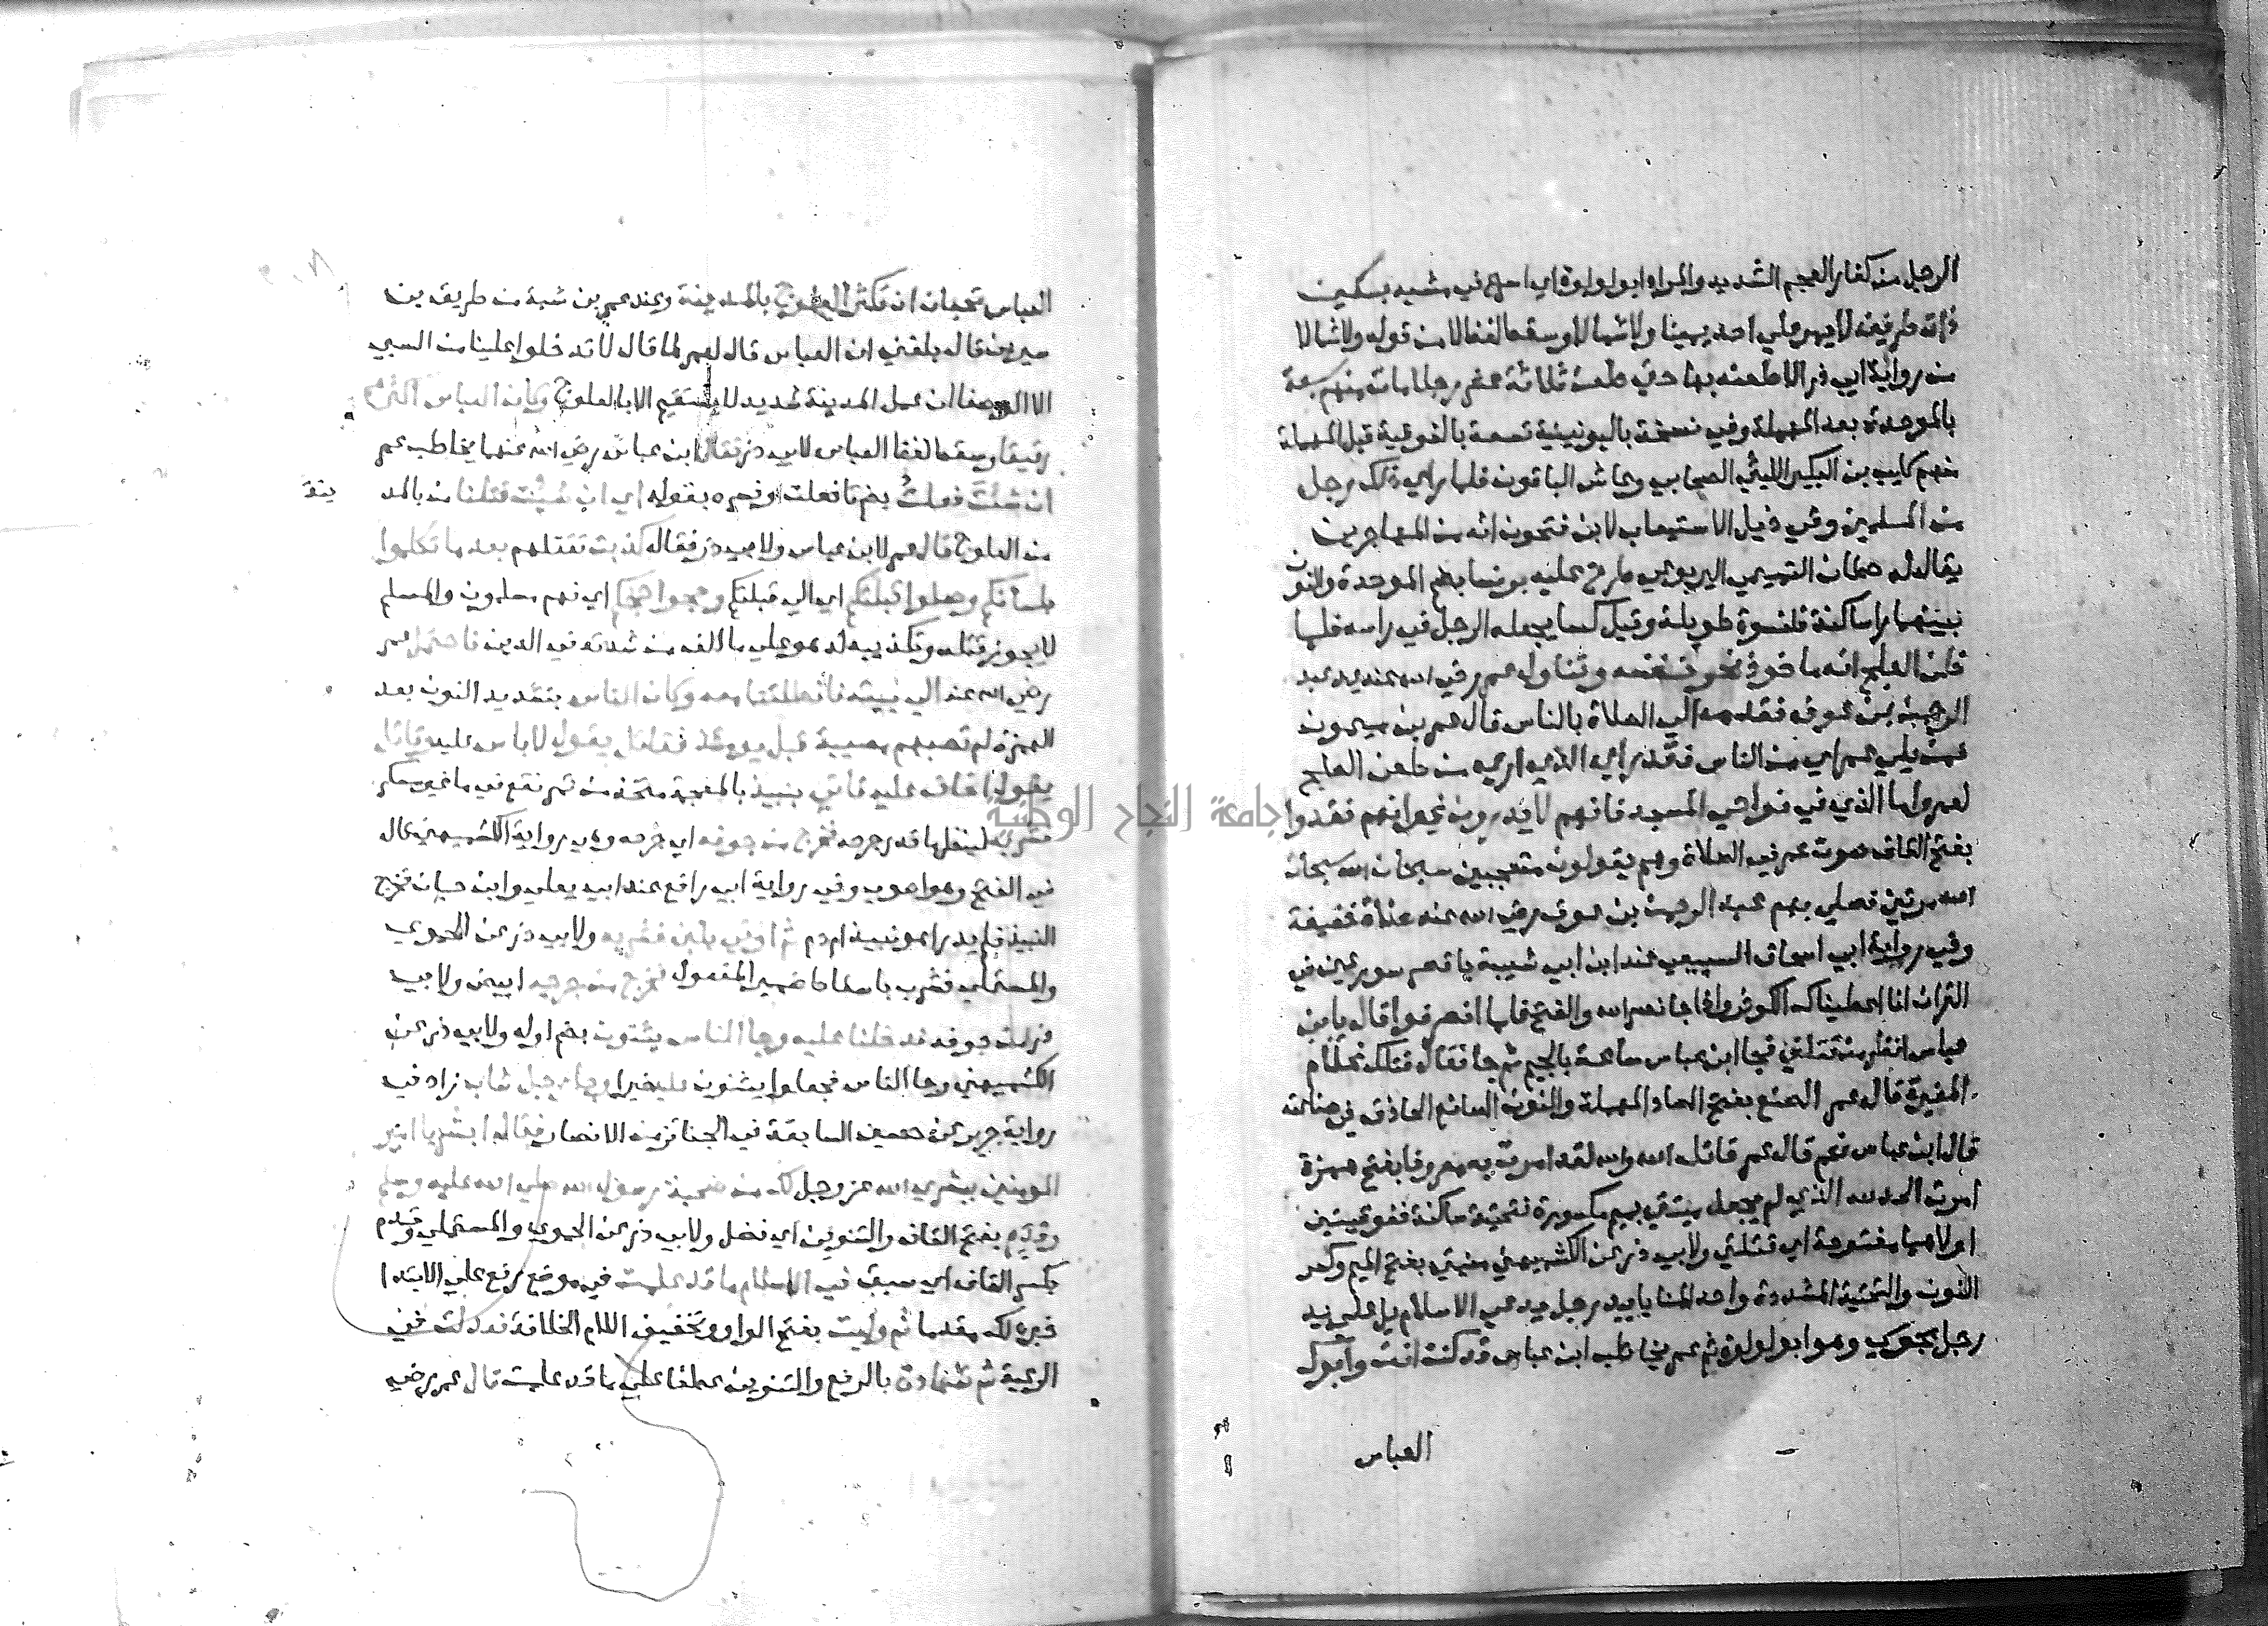 الرجل من كفار العجم الشديد والمراد ابو لولوة اي اسرع في مشيه بسكين
ذات طرفين لا يمر علي احد يمينا ولا شمالا وسقط لفظ لا من قوله ولا شمالا
من رواية ابي ذر الا طعنه بها حتي طعن ثلاثة عشر رجلا مات منهم سبعة
بالموحدة بعد المهملة وفي نسخة باليونينية تسعة بالفوقية قبل المهملة
منهم كليب بن البكير الليثي الصحابي وعاش الباقون فلما راي ذلك رجل
من المسلمين وفي ذيل الاستيعاب لابن فتحون انه من المهاجرين
يقال له حطان التميمي اليربوعي طرح عليه برنسا بضم الموحدة والنون
بينهما را ساكنة قلنسوة طويلة وقيل كسا يجعله الرجل في راسه فلما
ظن العلج انه ماخوذ نحر نفسه وتناول عمر رضي الله عنه يد عبد
الرحمن بن عوف فقدمه الي الصلاة بالناس قال عمر بن ميمون
فمن يلي عمر اي من الناس فقد راي الذي اري من طعن العلج
لعمر واما الذي في نواحي المسجد فانهم لا يدرون غير انهم فقدوا
بفتح القاف صوت عمر في الصلاة وهم يقولون متعجبين سبحان الله سبحان
الله مرتين فصلي بهم عبد الرحمن بن عوف رضي الله عنه صلاة خفيفة
وفي رواية ابي اسحاق السبيعي عند ابن ابي شيبة باقصر سورتين في
القران انا اعطيناك الكوثر واذا جا نصر الله والفتح فلما انصرفوا قال يا بن
عباس انظر من قتلني فجا ابن عباس ساعة بالجيم ثم جا فقال قتلك غلام
المغيرة قال عمر الصنع بفتح الصاد المهملة والنون الصانع الحاذق في صناعته
قال ابن عباس نعم قال عمر قاتله الله والله لقد امرت به معروفا بفتح همزة
امرت الحمد لله الذي لم يجعل ميتتي بميم مكسورة فتحتية ساكنة ففوقيتين
اولاهما مفتوحة اي قتلتي ولابي ذر عن الكشميهني منيتي بفتح الميم وكسر
النون والتحتية المشددة واحد المنايا بيد رجل يدعي الاسلام بل علي يد
رجل مجوسي وهو ابو لولوة ثم عمر يخاطب ابن عباس قد كنت انت وابوك
العباس
العباس تحبان ان تكثر العلوج بالمدينة وعند عمر بن شبة من طريق بن
سيرين قال بلغني ان العباس قال لعمر لما قال لا تدخلوا علينا من السبي
الا الوصفا ان عمل المدينة شديد لا يستقيم الا بالعلوج وكان العباس اكثرهم
رقيقا وسقط لفظ العباس لابي ذر فقال ابن عباس رضي الله عنهما يخاطب عمر
ان شئت فعلت بضم تا فعلت وفسره بقوله اي ان شئت قتلنا من بالمد
ينة
من العلوج قال عمر لابن عباس ولابي ذر فقال كذبت تقتلهم بعد ما تكلموا
بلسانكم وصلوا قبلتكم اي الي قبلتكم وحجوا حجكم اي فهم مسلمون والمسلم
لا يجوز قتله وتكذيبه له هو علي ما الفه من شدته في الدين فاحتمل عمر
رضي الله عنه الي بيته فانطلقنا معه وكان الناس بتشديد النون بعد
الهمزة لم تصبهم مصيبة قبل يومئذ فقائل يقول لا باس عليه وقائل
يقول اخاف عليه فاتي بنبيذ بالمعجمة متخذ من تمر نقع في ما غير مسكر
فشربه لينظر ما قدر جرحه فخرج من جوفه اي جرحه وهي رواية الكشميهني قال
في الفتح وهو اصوب وفي رواية ابي رافع عند ابي يعلي وابن حبان فخرج
النبيذ فلم يدر اهو نبيذ ام دم ثم اوتي بلبن فشربه ولابي ذر عن الحموي
والمستملي فشرب باسقاط ضمير المفعول فخرج من جرحه ابيض ولابي
ذر من جوفه فدخلنا عليه وجا الناس يثنون بضم اوله ولابي ذر عن
الكشميهني وجا الناس فجعلوا يثنون عليه خيرا وجا رجل شاب زاد في
رواية جرير عن حصين السابقة في الجنائز من الانصار فقال ابشر يا امير
المومنين ببشري الله عز وجل لك من صحبة رسول الله صلي الله عليه وسلم
وقدم بفتح القاف والتنوين اي فضل ولابي ذر عن الحموي والمستملي وقدم
بكسر القاف اي سبق في الاسلام ما قد علمت في موضع رفع علي الابتدا
خبره لك مقدما ثم وليت بفتح الواو وتخفيف اللام الخلافة فعدلت في
الرعية ثم شهادة بالرفع والتنوين عطفا علي ما قد علمت قال عمر رضي
جامعة النجاح الوطنية